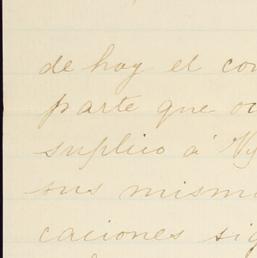 de hoy el con
parte que oc
suplico á Vy
sus mismo
caciones sig